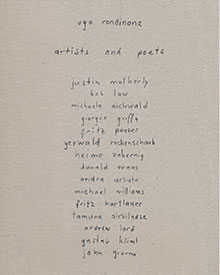 ugo rondinone
artists and poets
justin matherly
bob law
michaela eichwald
giorgio griffa
fritz panzer
gerwald rockenschaub
heimo zobernig
donald evans
andra ursuta
michael williams
fritz hartlauer
tamuna sirbiladze
andrew lord
gustav klimt
john giorno